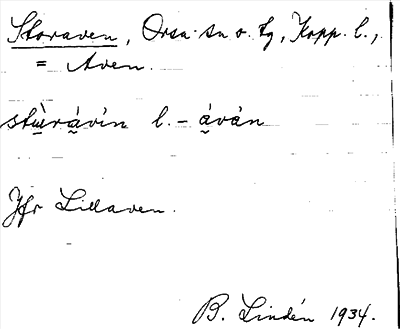 Storaven, Orsa sn o. tg, Kopp. l.,
= Aven.
stu̱̇rá̱vin l. - á̱ván
Jfr Lillaven.
B. Lindén 1934.